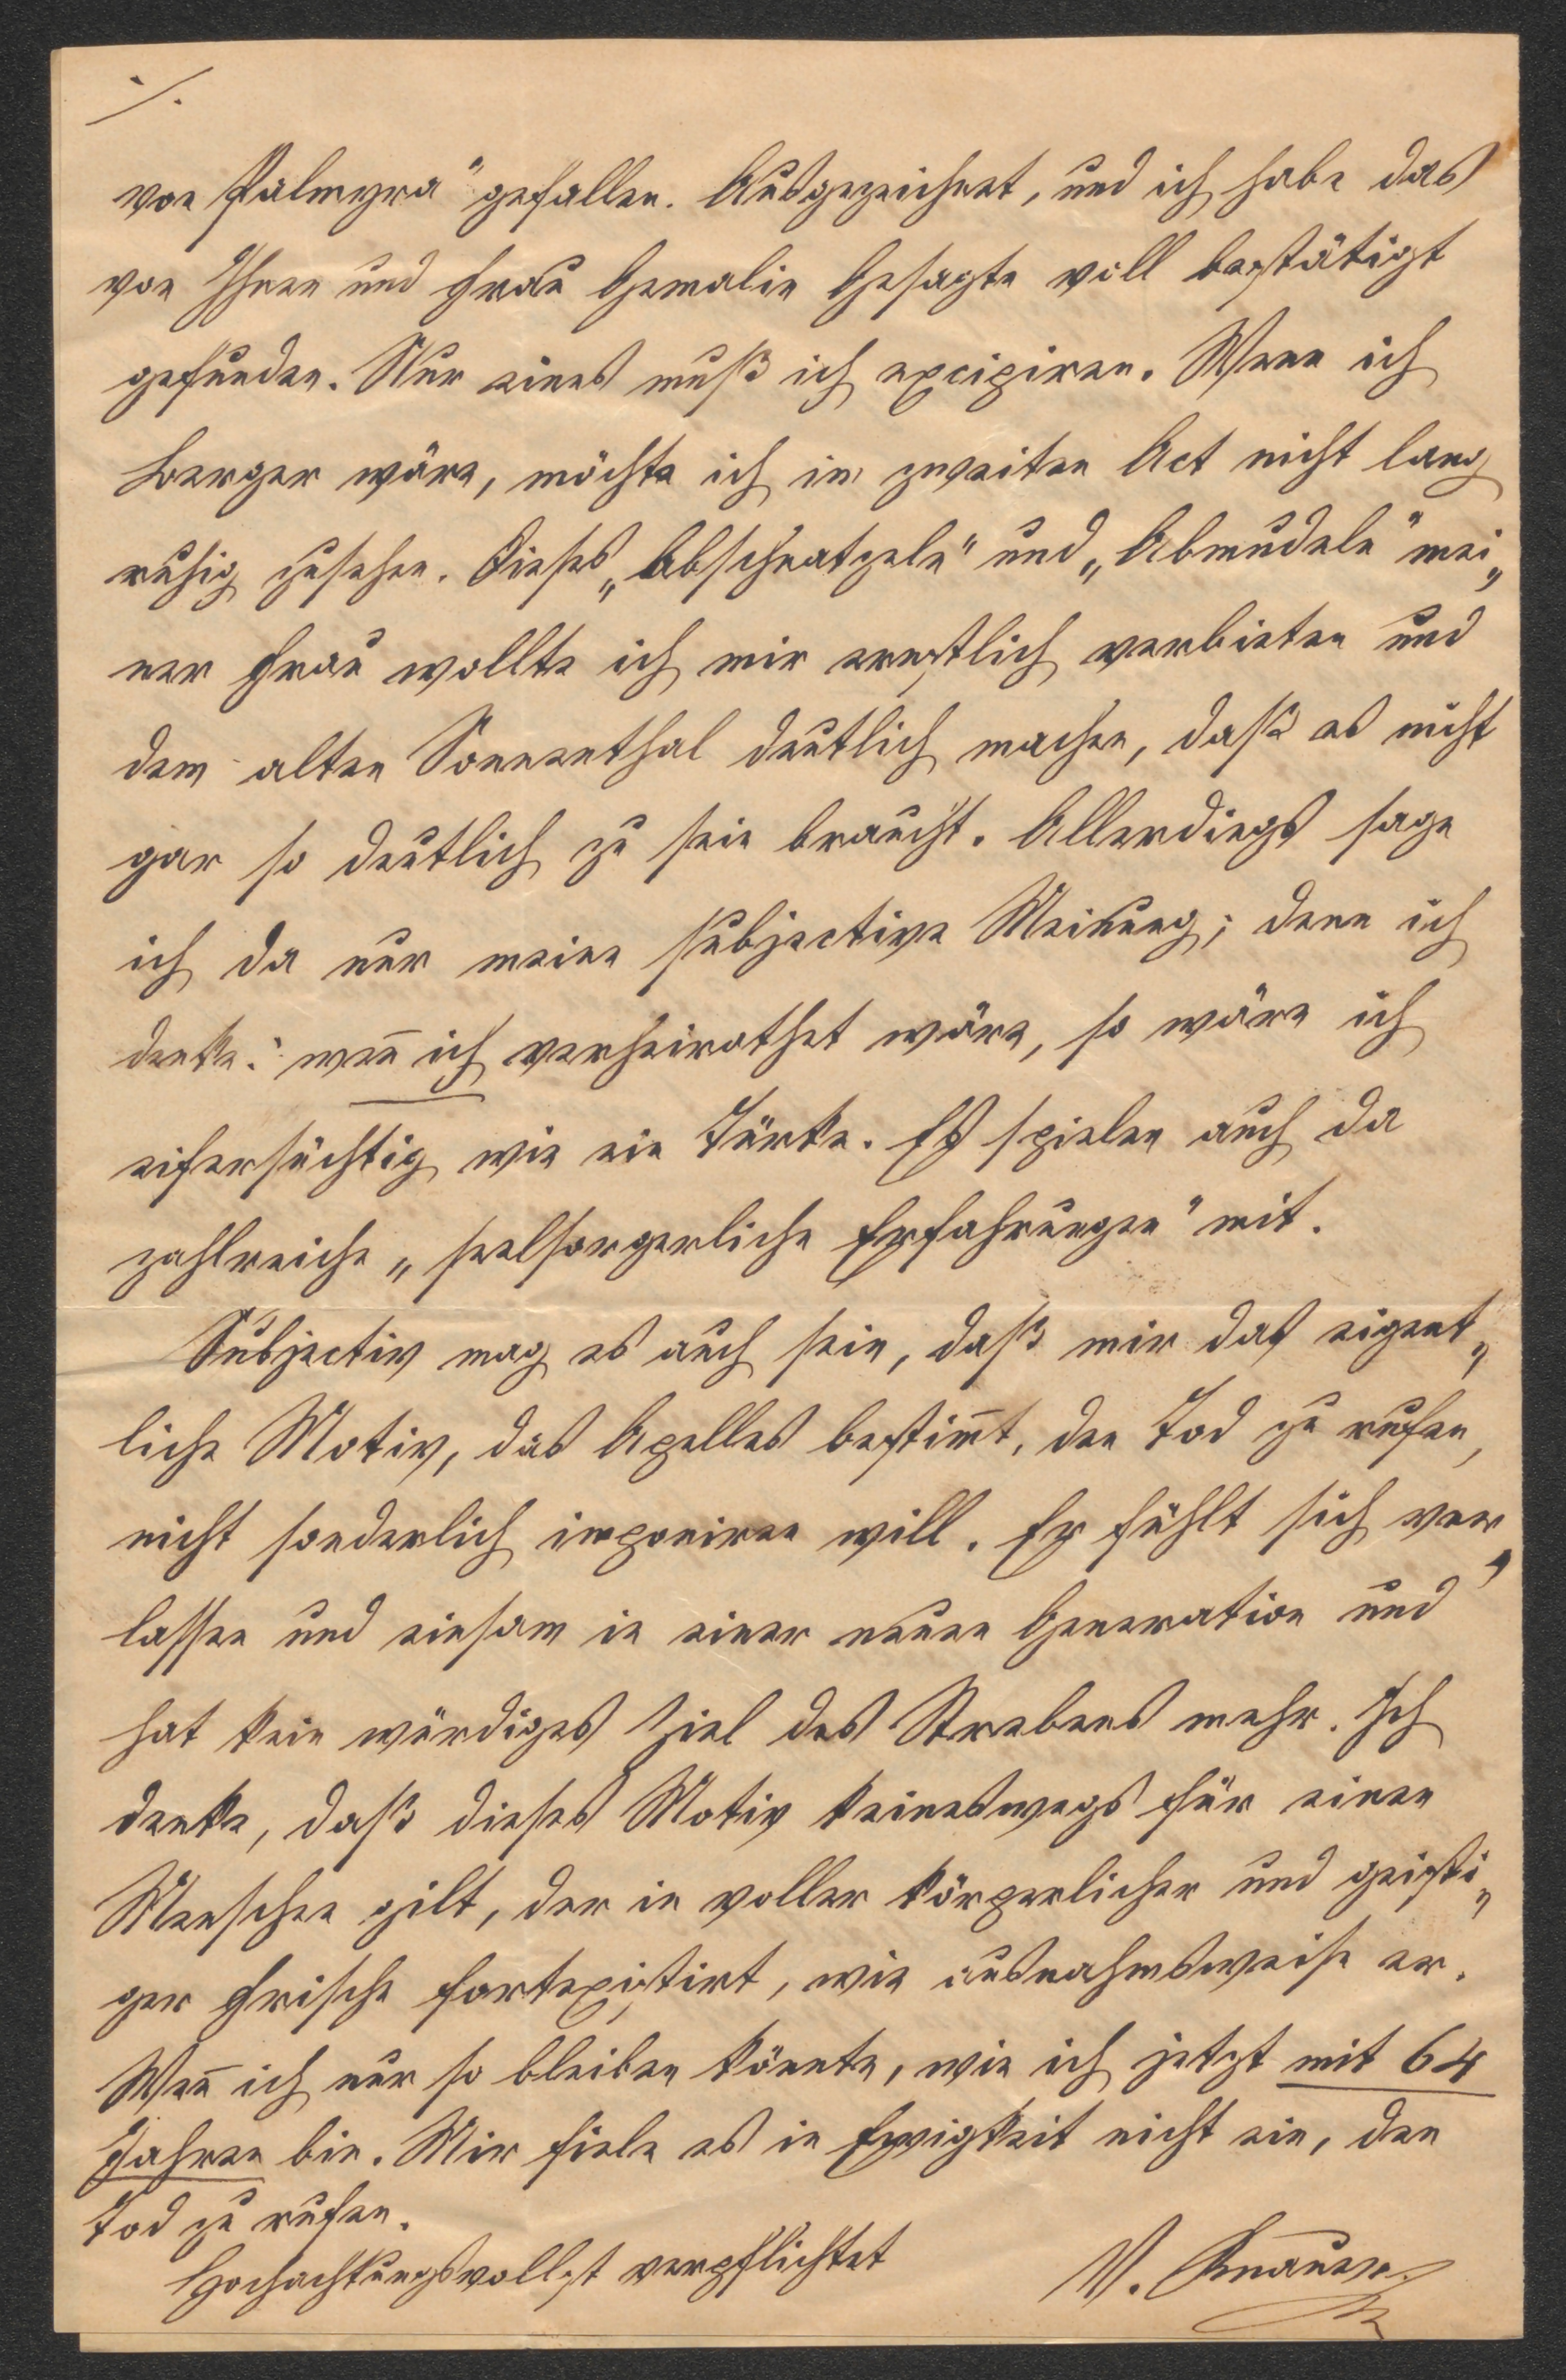 ./.
von Palmyra" gefallen. Ausgezeichnet, und ich habe das
von Ihnen und Frau Gemalin Gesagte voll bestätigt
gefunden. Nur eines muß ich excipiren. Wenn ich
Berger wäre, möchte ich im zweiten Act nicht lang
ruhig zusehen. Dieses „Abschmatzeln" und „Abmudeln" mei„
ner Frau wollte ich mir ernstlich verbieten und
dem alten Sonnenthal deutlich machen, daß es nicht
gar so deutlich zu sein braucht. Allerdings sage
ich da nur meine subjective Meinung; denn ich
denke: wen̄ ich verheirathet wäre, so wäre ich
eifersüchtig wie ein Türke. Es spielen auch da
zahlreiche „seelsorgerliche Erfahrungen" mit.
Subjectiv mag es auch sein, daß mir das eigent„
liche Motiv, das Apelles bestim̄t, den Tod zu rufen,
nicht sonderlich imponiren will. Er fühlt sich ver„
lassen und einsam in einer neuen Generation und
hat kein würdiges Ziel des Strebens mehr. Ich
denke, daß dieses Motiv keineswegs für einen
Menschen gilt, der in voller körperlicher und geisti„
ger Frische fortexistirt, wie ausnahmsweise er.
Wen̄ ich nur so bleiben könnte, wie ich jetzt mit 64
Jahren bin. Mir fiele es in Ewigkeit nicht ein, den
Tod zu rufen.
Hochachtungsvollst verpflichtet V. Knauer